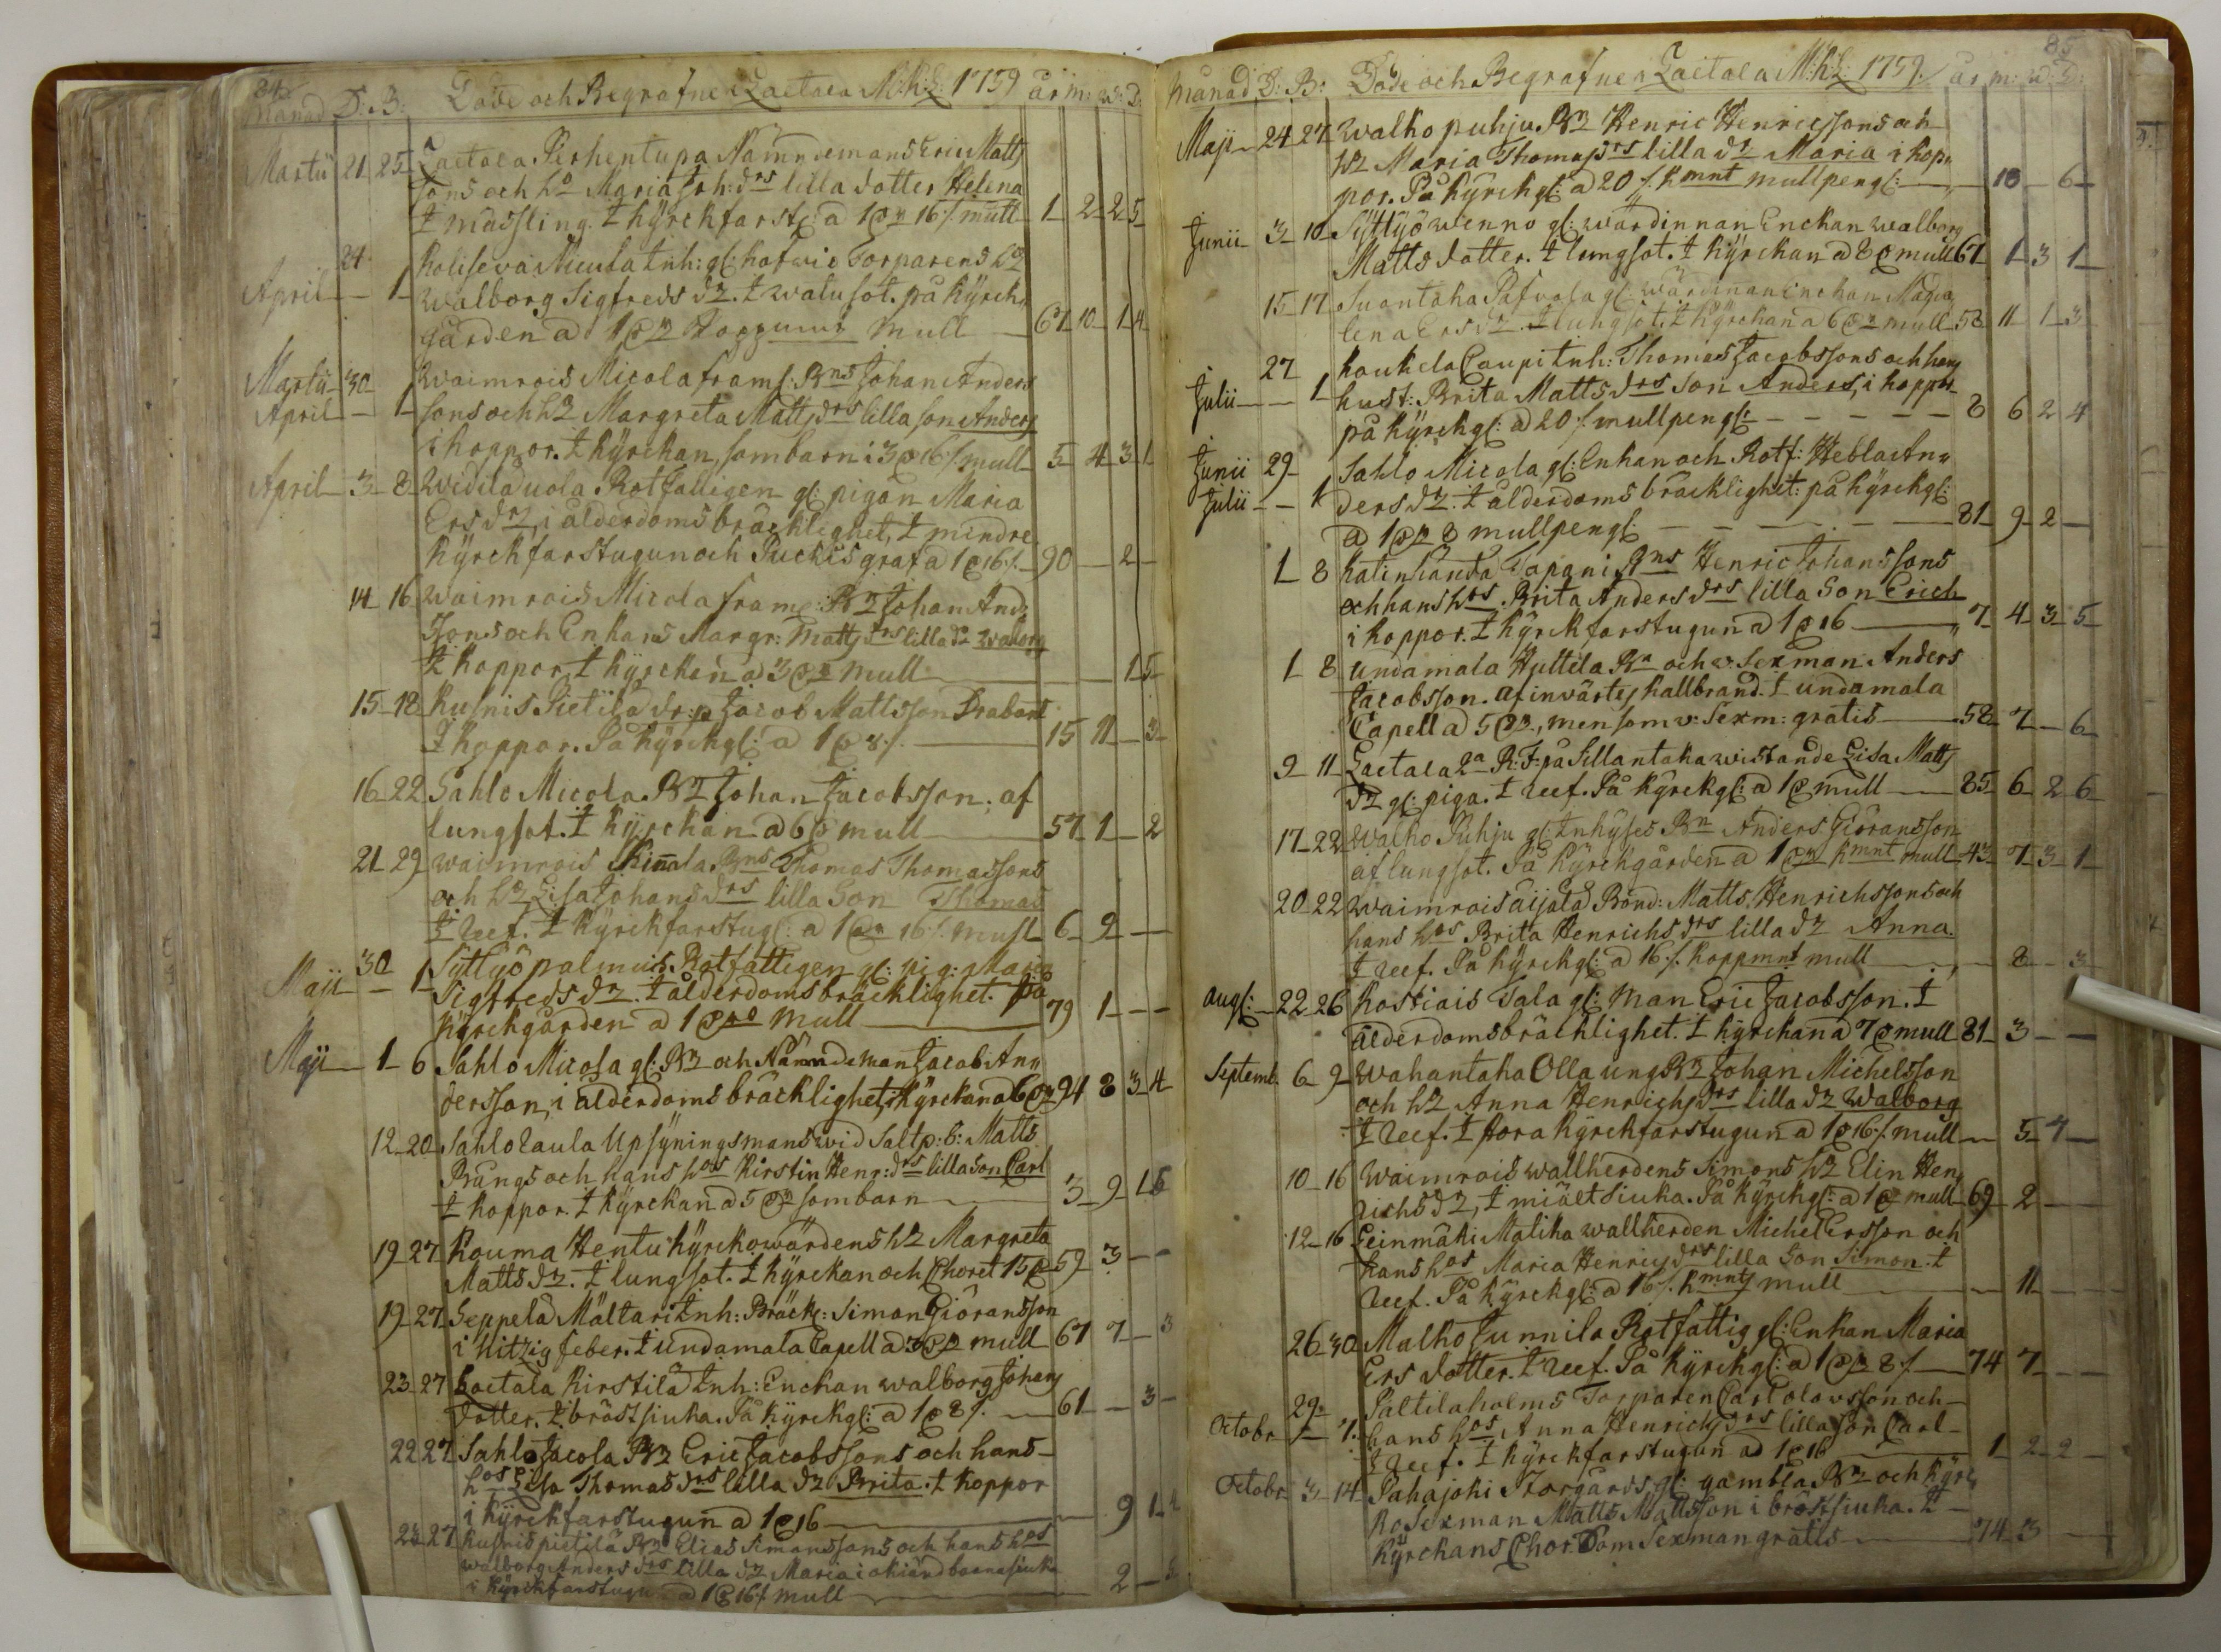 84
Månad D: B: Döde och Begrafne i Laitala M:K:L: 1759 år m: w: D:
Martii 21 25 Laitala Perhentupa Nämndemans Eric Matts
sons och ho Maria Joh: drs lilla dotter Helena
I mässling. I kyrckfarst: a 16 / mull 1 2 2 5
24 Koliseva Nicula Inh: gl: Torparens
April 1 Walborg Sigfreds dr. I watusot. på kyrck
gården a 1 mull 61 10 1 4
Martii 30 Waimrois Micola framl: Bns Johan Anders
April 1 sons och hr Margreta Matts drs lilla son Anders
i koppor. I kyrckan, som barn i 3 16 / mull 5 4 3 1
April 3 8 Widilä uola Rotfattigen gl: pigan Maria
Ers dr, i ålderdoms bräcklighet, I mindre
kyrckfarstugun och graf a 1 16 / 90 2
14 16 Waimrois Micola framl: Bn Johan And:
sons och Enkans Margr: Matts drs lilla dr Walborg
I koppor, I kyrckan a 3 mull 1 5
15 18 Kusnis Pietilä dr: p Jacob Mattsson Drabant
I koppor. På kyrckgl: a 1 8 / 15 11 3
16 22 Sahlo Micola Br Johan Jacobsson. af
lungsot. I kyrckan a 6 mull 57 1 2
21 29 Waimrois Bns Thomas Thomassons
och hr Lisa Johans drs lilla Son Thomas
I reef. I kyrckfarstug: a 1 16 / mull 6 9
30 Syttyö palmuis Rotfattigen gl: pig: Maria
Maji 1 Sigfreds dr. I ålderdoms bräcklighet. på
kyrckgården a 1 mull 79 1
Maji 1 6 Sahlo Micola gl: Br och Nämndeman Jacob An
dersson, i ålderdoms bräcklighet, i kyrckan a 6 94 8 3 4
12 20 Sahlo Laula Upsyningsmans wid Saltp: b: Matts
Bångs och hans hos Kirstin Henr: drs lilla son Carl
I koppor. I kyrckan a 5 som barn 3 9 1 5
19 27 Kouma Hentu kyrckowärdens hr Margreta
Matts dr. I lungsot. I kyrckan och Choret 15 59 3
19 27 Seppelä Mältäri Inh: Bräckl: Simon Giöransson
i hitzig feber. I undamala Capell a 3 mull 67 7 3
23 27 Laitala Kirstilä Inh: Enckan Walborg Johans
dotter. I bröstsiuka. På kyrckgl: a 1 8 / 61 3
22 27 Sahlo Jacola Br Eric Jacobssons och hans
hos Lisa Thomas drs lilla dr Brita. I koppor
i kyrckfarstugun a 1 16 9 1
27 Kusnis pietilä Br Elias Simonssons och hans hos
Walborg Anders drs lilla dr Maria i okiänd barnasiuka
i kyrckfarstugu a 1 16 / mull 2
85
Månad D: B: Döde och Begrafne i Laitala M:K:L: 1759. år m: w: D:
Maji 24 27 Walko puhju Br Henric Henricssons och
hr Maria Thomas drs lilla dr Maria i kop
por. På kyrckgl: a 20 / kmnt mullpengl: 10 6
Junii 3 10 Syttyö wienno gl: wärdinnan Enckan Walborg
Matts dotter. I lungsot. I kyrckan a 8 mull 67 1 3 1
15 17 Suontaka Pafvola gl: wärdinnan Enckan Magda
lena Ers dr. I lungsot. I kyrckan a 6 mull 58 11 1 3
27 Koukela Caupi Inh: Thomas Jacobssons och hans
Julii 1 hust: Brita Matts drs Son Anders, i koppor
på kyrckgl: a 20 / mullpengl: 8 6 2 4
Junii 29 Sahlo Micola gl: Enkan och Rotf: Hebla An
Julii 1 ders dr. I ålderdoms bräcklighet: på kyrckgl:
a 1 8 mullpengl: 81 9 2
1 8 Katinhända Tapani Bns Henric Johanssons
och hans hos Brita Anders drs lilla Son Erich
i koppor. I kyrckfarstugun a 1 16 7 4 3 5
1 8 undamala Huttila Bn och v: Sexman Anders
Jacobsson. af invärtes kallbrand. I undamala
Capell a 5, men som v: Sexm: gratis 58 7 6
9 11 Laitala 2a R:F: på Sillantaka wistande Lisa Matts
dr gl: piga. I reef. På kyrckgl: a 1 mull 85 6 2 6
17 22 Walko Puhju gl: Inhyses Bn Anders Giöransson
af lungsot. På kyrckgården a 1 kmnt mull 43 7 3 1
20 22 Waimrois äijälä Bond: Matts Henrichssons och
hans hos Brita Henrichs drs lilla dr Anna.
I reef. På kyrckgl: a 16 / koppmnt mull 8 3
augl: 22 26 Kostiais Tala gl: Man Eric Jacobsson. I
ålderdoms bräcklighet. I kyrckan a 7 mull 81 3
Septemb. 6 9 Wahantaka Olla ung Br Johan Michelsson
och hr Anna Henrichs drs lilla dr Walborg
I reef. I stora kyrckfarstugun a 1 16 / mull 5 4
10 16 Waimrois wallherdens Simons hr Elin Hen
richs dr, I miältsiuka. På kyrckgl: a 1 mull 69 2
12 16 Leinmäki Matika wallherden Michel Ersson och
hans hos Maria Henrics drs lilla Son Simon. I
reef. På kyrckgl: a 16 / kmnt mull 11
26 30 Malko Junnila Rotfattig gl: Enkan Maria
Ers dotter. I reef. På kyrckgl: a 1 8 / 74 7
29 Saltilaholms Torparen Carl olavsson och
Octobr 7 hans hos Anna Henrichs drs lilla son Carl
I reef. I kyrckfarstugun a 1 16 1 2 2
Octobr 3 14 Pahajoki Storgårds gl: gambla Bn och kyrc
ko Sexman Matts Mattsson i bröstsiuka. I
kyrckans Chor som Sexman gratis 74 3